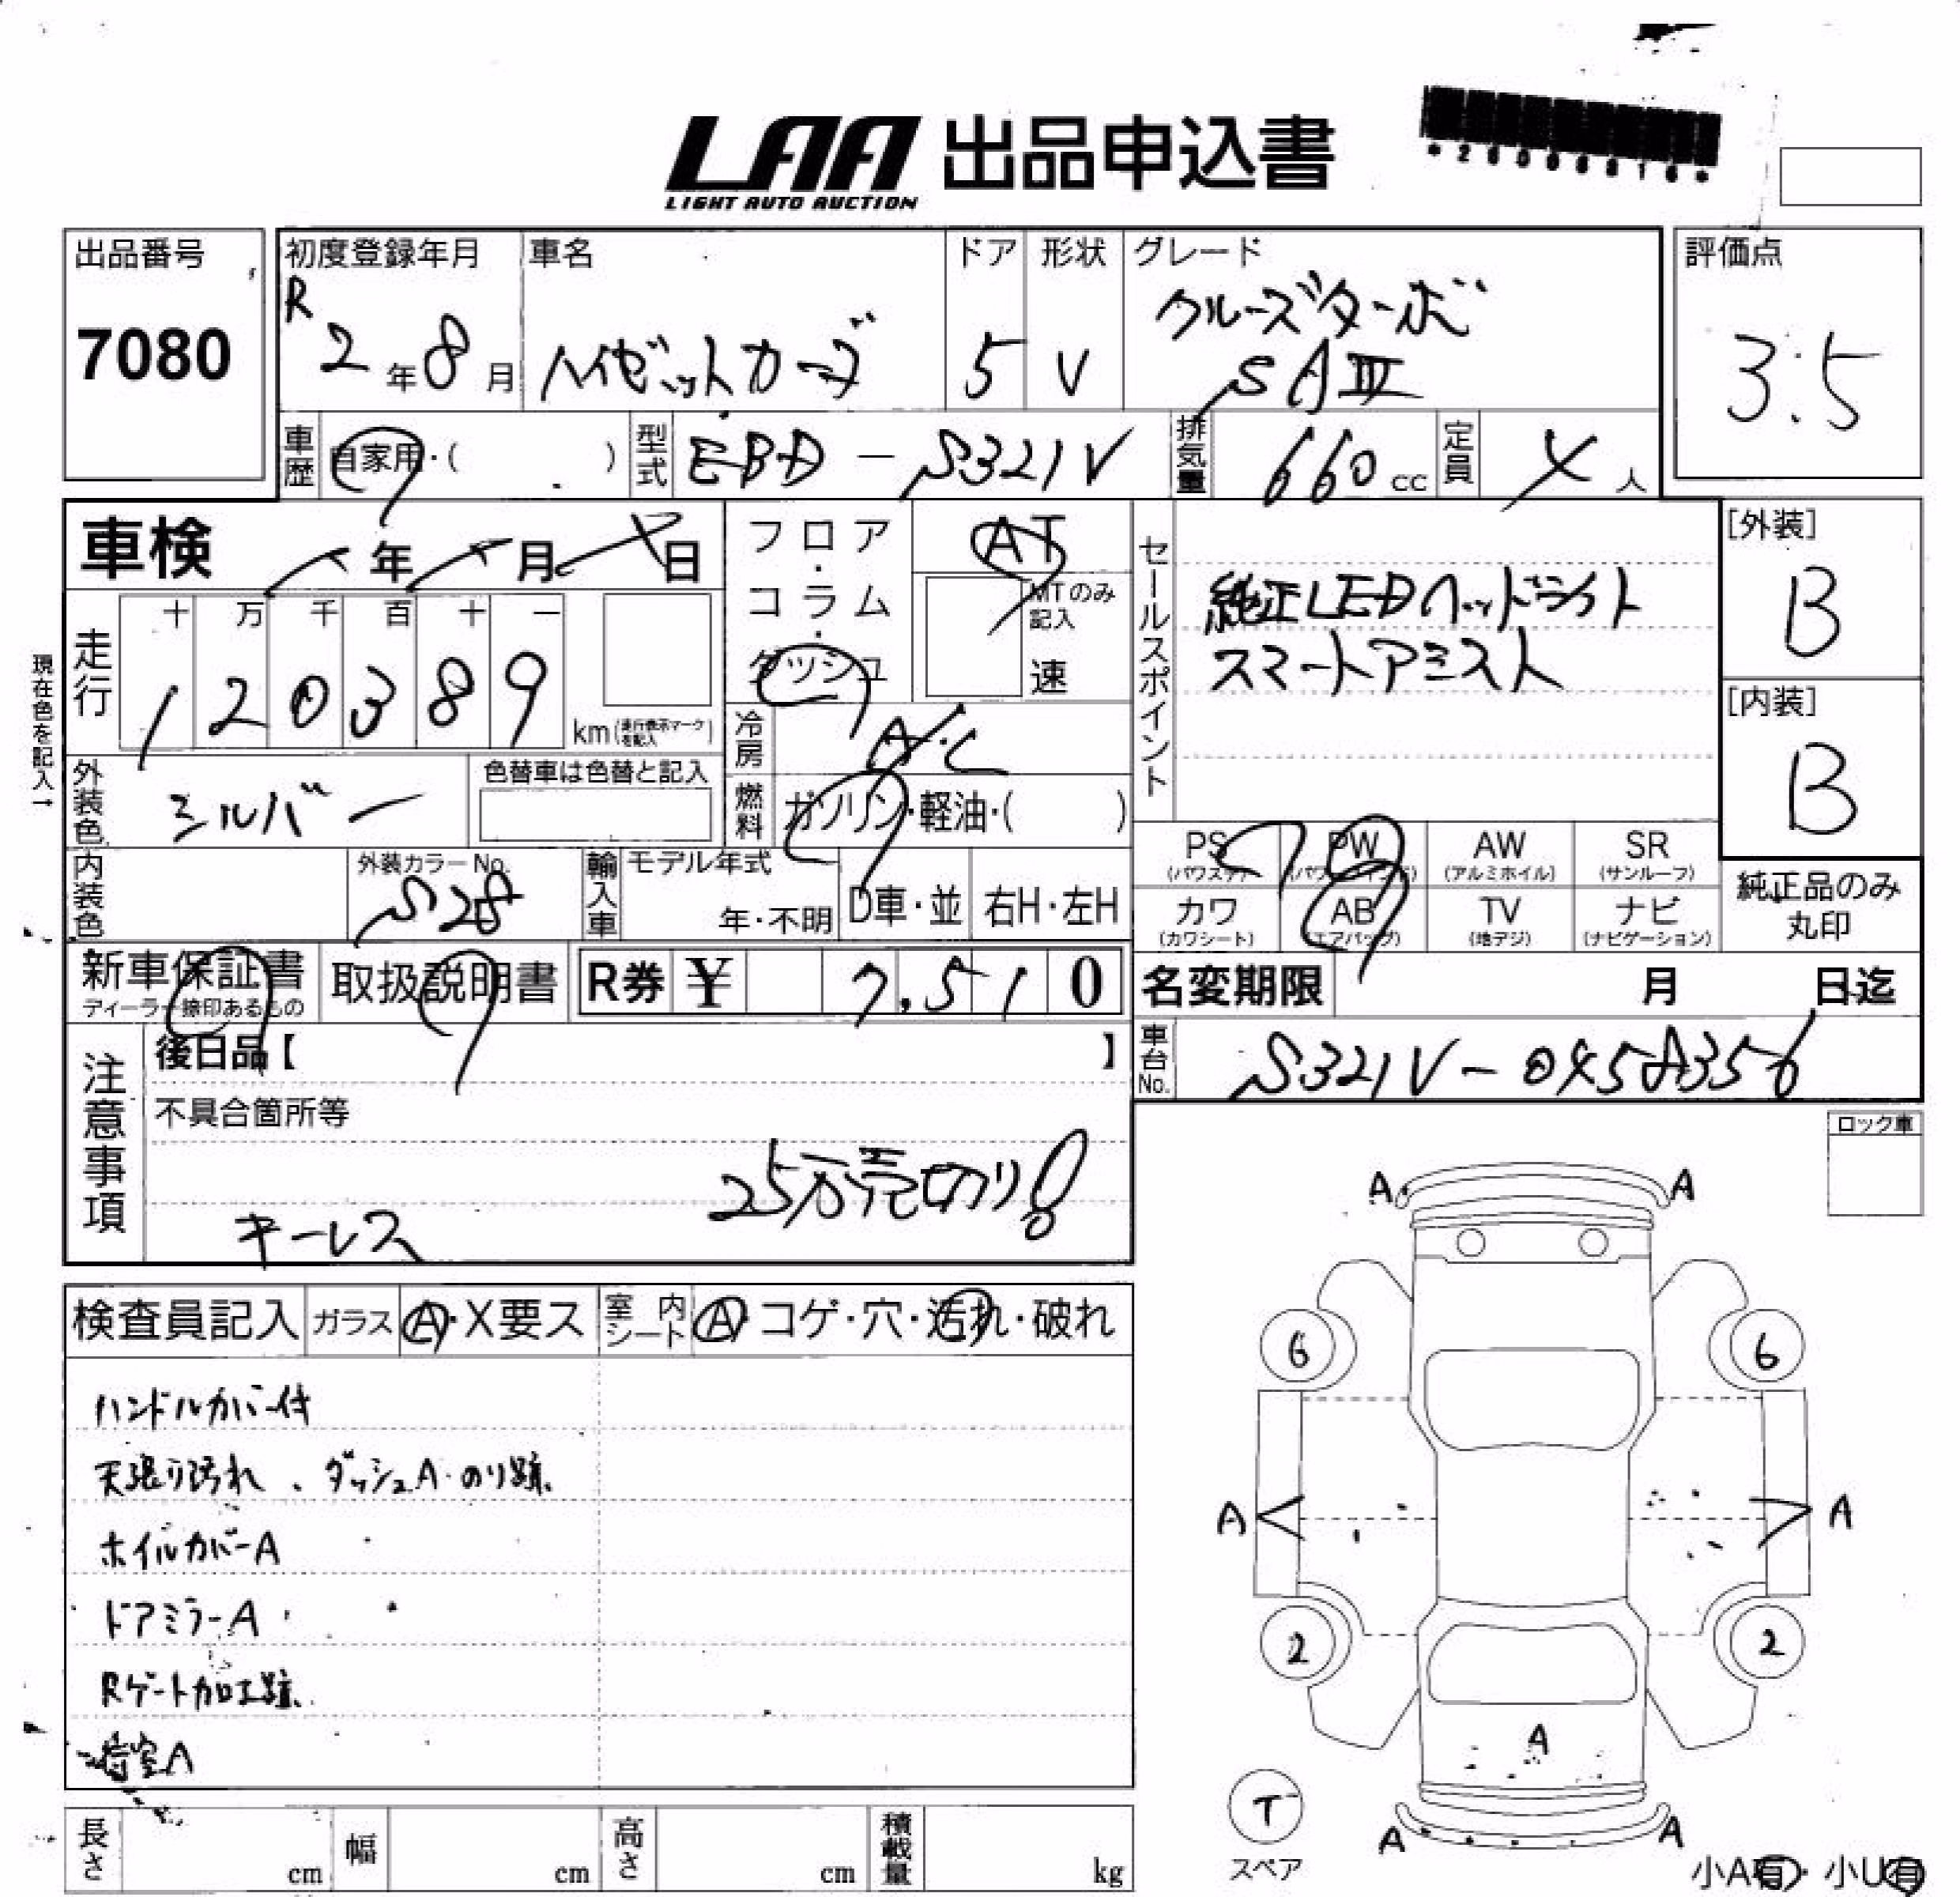 LAA 出品申込書
LIGHT AUTO AUCTION
出品番号
7080
初度登録年月
R 2年8月
車名
ハイゼットカーゴ
ドア
5
形状
V
グレード
クルーズターボ
SAⅢ
評価点
3.5
車歴
自家用・( )
型式
EBD-S321V
排気量
660cc
定員
4人
車検 年 月 日
フロア・コラム・ダッシュ
AT
MTのみ記入
速
セールスポイント
純正LEDヘッドライト
スマートアシスト
[外装]
B
[内装]
B
現在色を記入→
走行
十 万 千 百 十 一
1 2 0 3 8 9
km(走行表示マークを記入)
冷房
A/C
燃料
ガソリン・軽油・( )
外装色
シルバー
色替車は色替と記入
内装色
外装カラーNo.
S28
輸入車
モデル年式
年・不明
D車・並
右H・左H
PS
(パワステ)
PW
(パワーウインド)
AW
(アルミホイル)
SR
(サンルーフ)
カワ
(カワシート)
AB
(エアバッグ)
TV
(地デジ)
ナビ
(ナビゲーション)
純正品のみ
丸印
新車保証書
ディーラー捺印あるもの
取扱説明書
R券 ¥ 7,510
名変期限 月 日迄
車台No.
注意事項
後日品【 】
不具合箇所等
25万売切り!
キーレス
ロック車
検査員記入
ガラス
A・X要ス
室内シート
A・コゲ・穴・汚れ・破れ
ハンドルカバー付
天張り汚れ、ダッシュA・のり跡
ホイルカバーA
ドアミラーA
Rゲート加工跡
荷室A
A A
6 6
A A
2 2
A
T
スペア
A A
小A有・小U有
長さ cm
幅 cm
高さ cm
積載量 kg